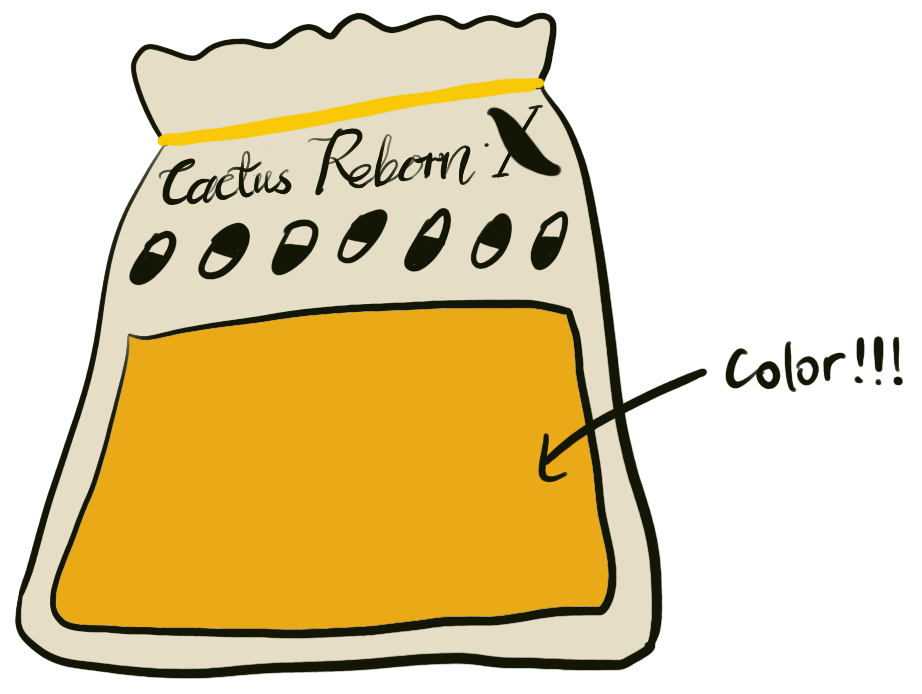 Cactus Reborn X
Color!!!